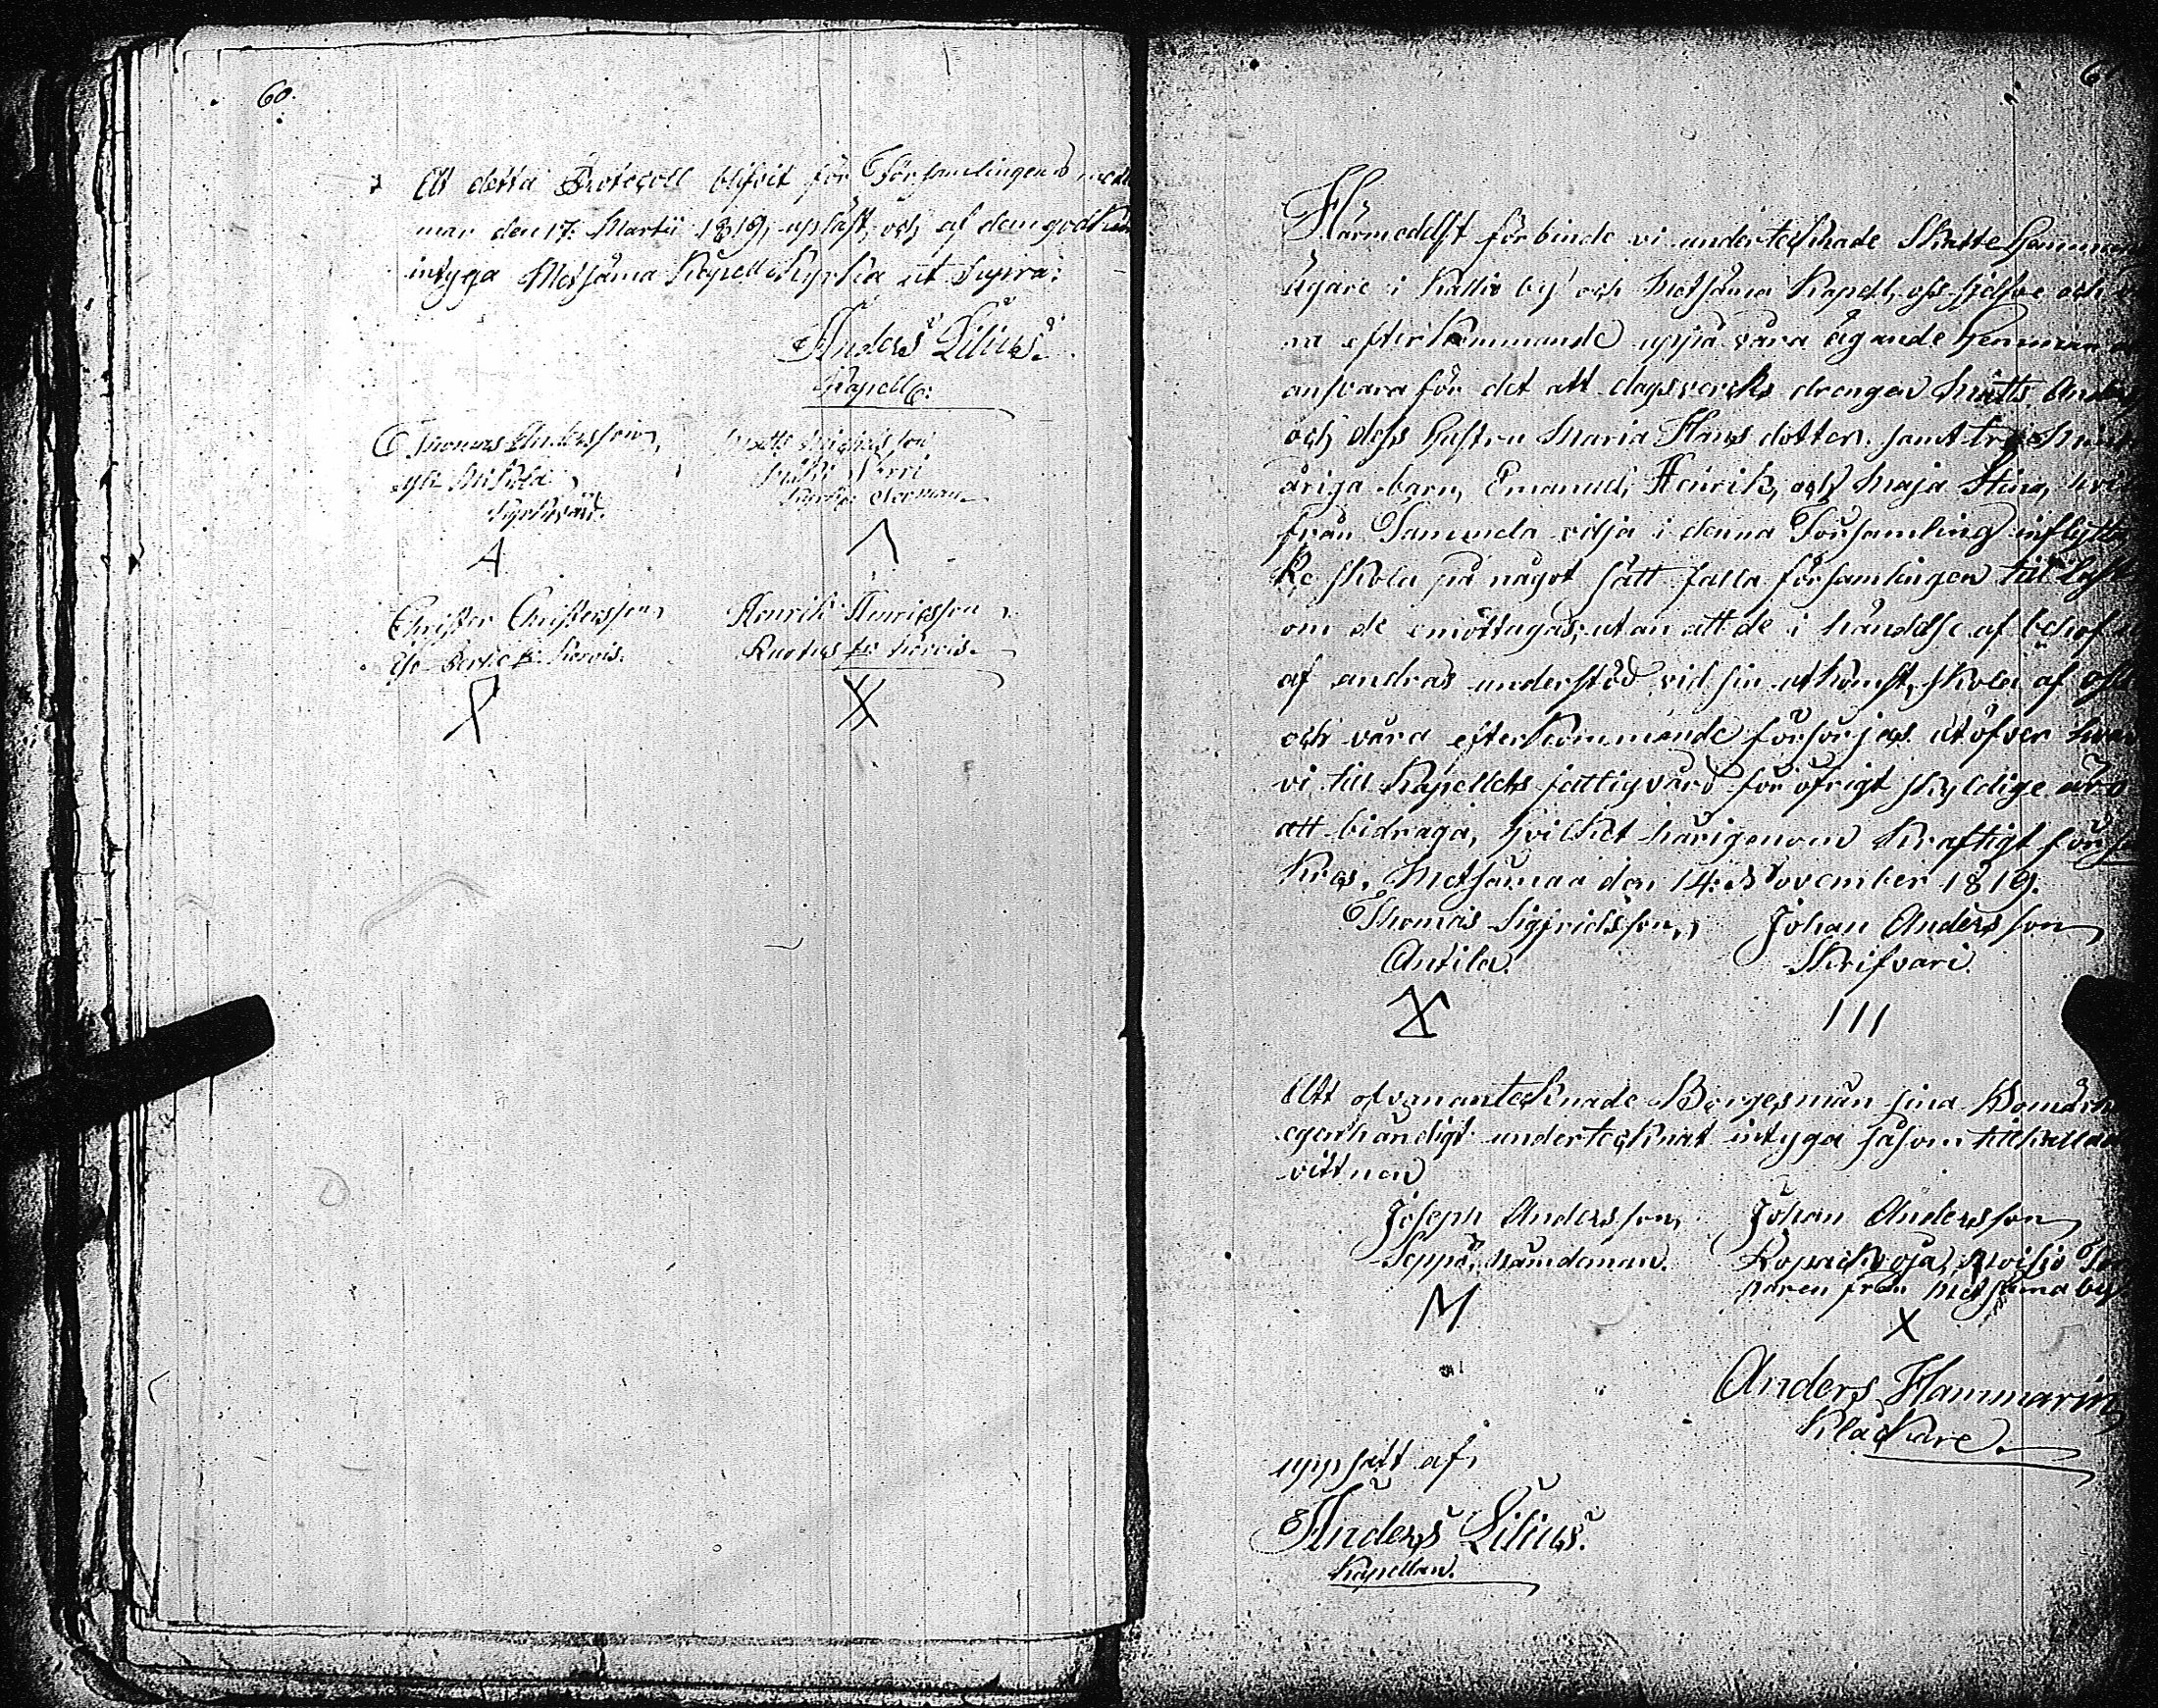 60.
Att detta Protocoll blifvit för Församlingens med
man den 17. Martii 1819, upläst, och af dem godkän
intyga Metsäma Kapell Kyrka ut Supra:
Anders Lilius.
Kapell:
Thomas Andersson,
Kyrkovärd.
Christer Christersson,
Henrik Henricsson,
61
Härmedelst förbinde vi undertecknade Skatte Hemmans
ägare i Kallio by och Metsäma Kapell, oss sjelfve och vå
ra efterkommande uppå våra ägande Hemman at
ansvara för det att dagsverks drengen Matts Anders
och dess hustru Maria Hans dotter samt tre min
åriga barn, Emanuel, Henrik, och Maja Stina, hvil
från Tammela vilja i denna Församling inflytta
ke skola på något sätt falla församlingen till last
om de emottagas, utan att de i händelse af behof
af andras understöd vid sin utkomst, skola af oss
och våra efterkommande försörjas utöfver hvad
vi till Kapellets fattigvård för öfrigt skyldige äro
att bidraga, hvilket härigenom kraftigt försä
kras, Metsämaa den 14. November 1819.
Thomas Sigfridsson, Johan Andersson,
Antila. Skrifvari.
X III
Att ofvanantecknade Borgesmän sina Bomärk
egenhändigt undertecknat intyga såsom tillkallade
vittnen
Joseph Andersson, Johan Andersson,
Seppä, Nämdeman.
från Metsäma by
M X
Anders Hammarin,
Klåckare.
uppsatt af,
Anders Lilius.
Kapellan.